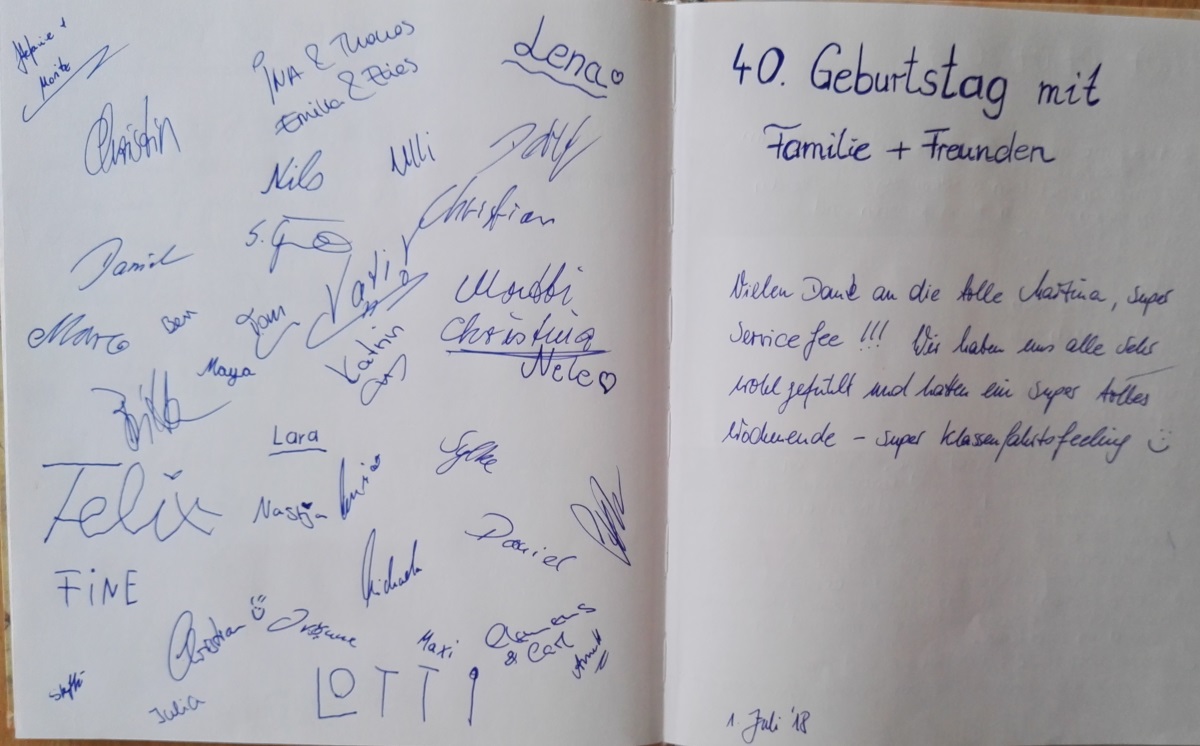 Stefanie +
Moritz
INA & Thomas
Emilia & Fries
Lena
Christin
Nils
Ulli
Christian
Daniel
S.
Marco
Ben
Tom
Katrin
Christina
Nele
Maya
Britta
Lara
Sylke
Felix
Nastja
Daniel
Michaela
FiNE
Christian
Maxi
Clemens
& Carl
Annett
Julia
LOTTI
40. Geburtstag mit
Familie + Freunden
Vielen Dank an die tolle Martina, super
Servicefee !!! Wir haben uns alle sehr
wohl gefühlt und hatten ein super tolles
Wochenende – super Klassenfahrtsfeeling
1. Juli '18